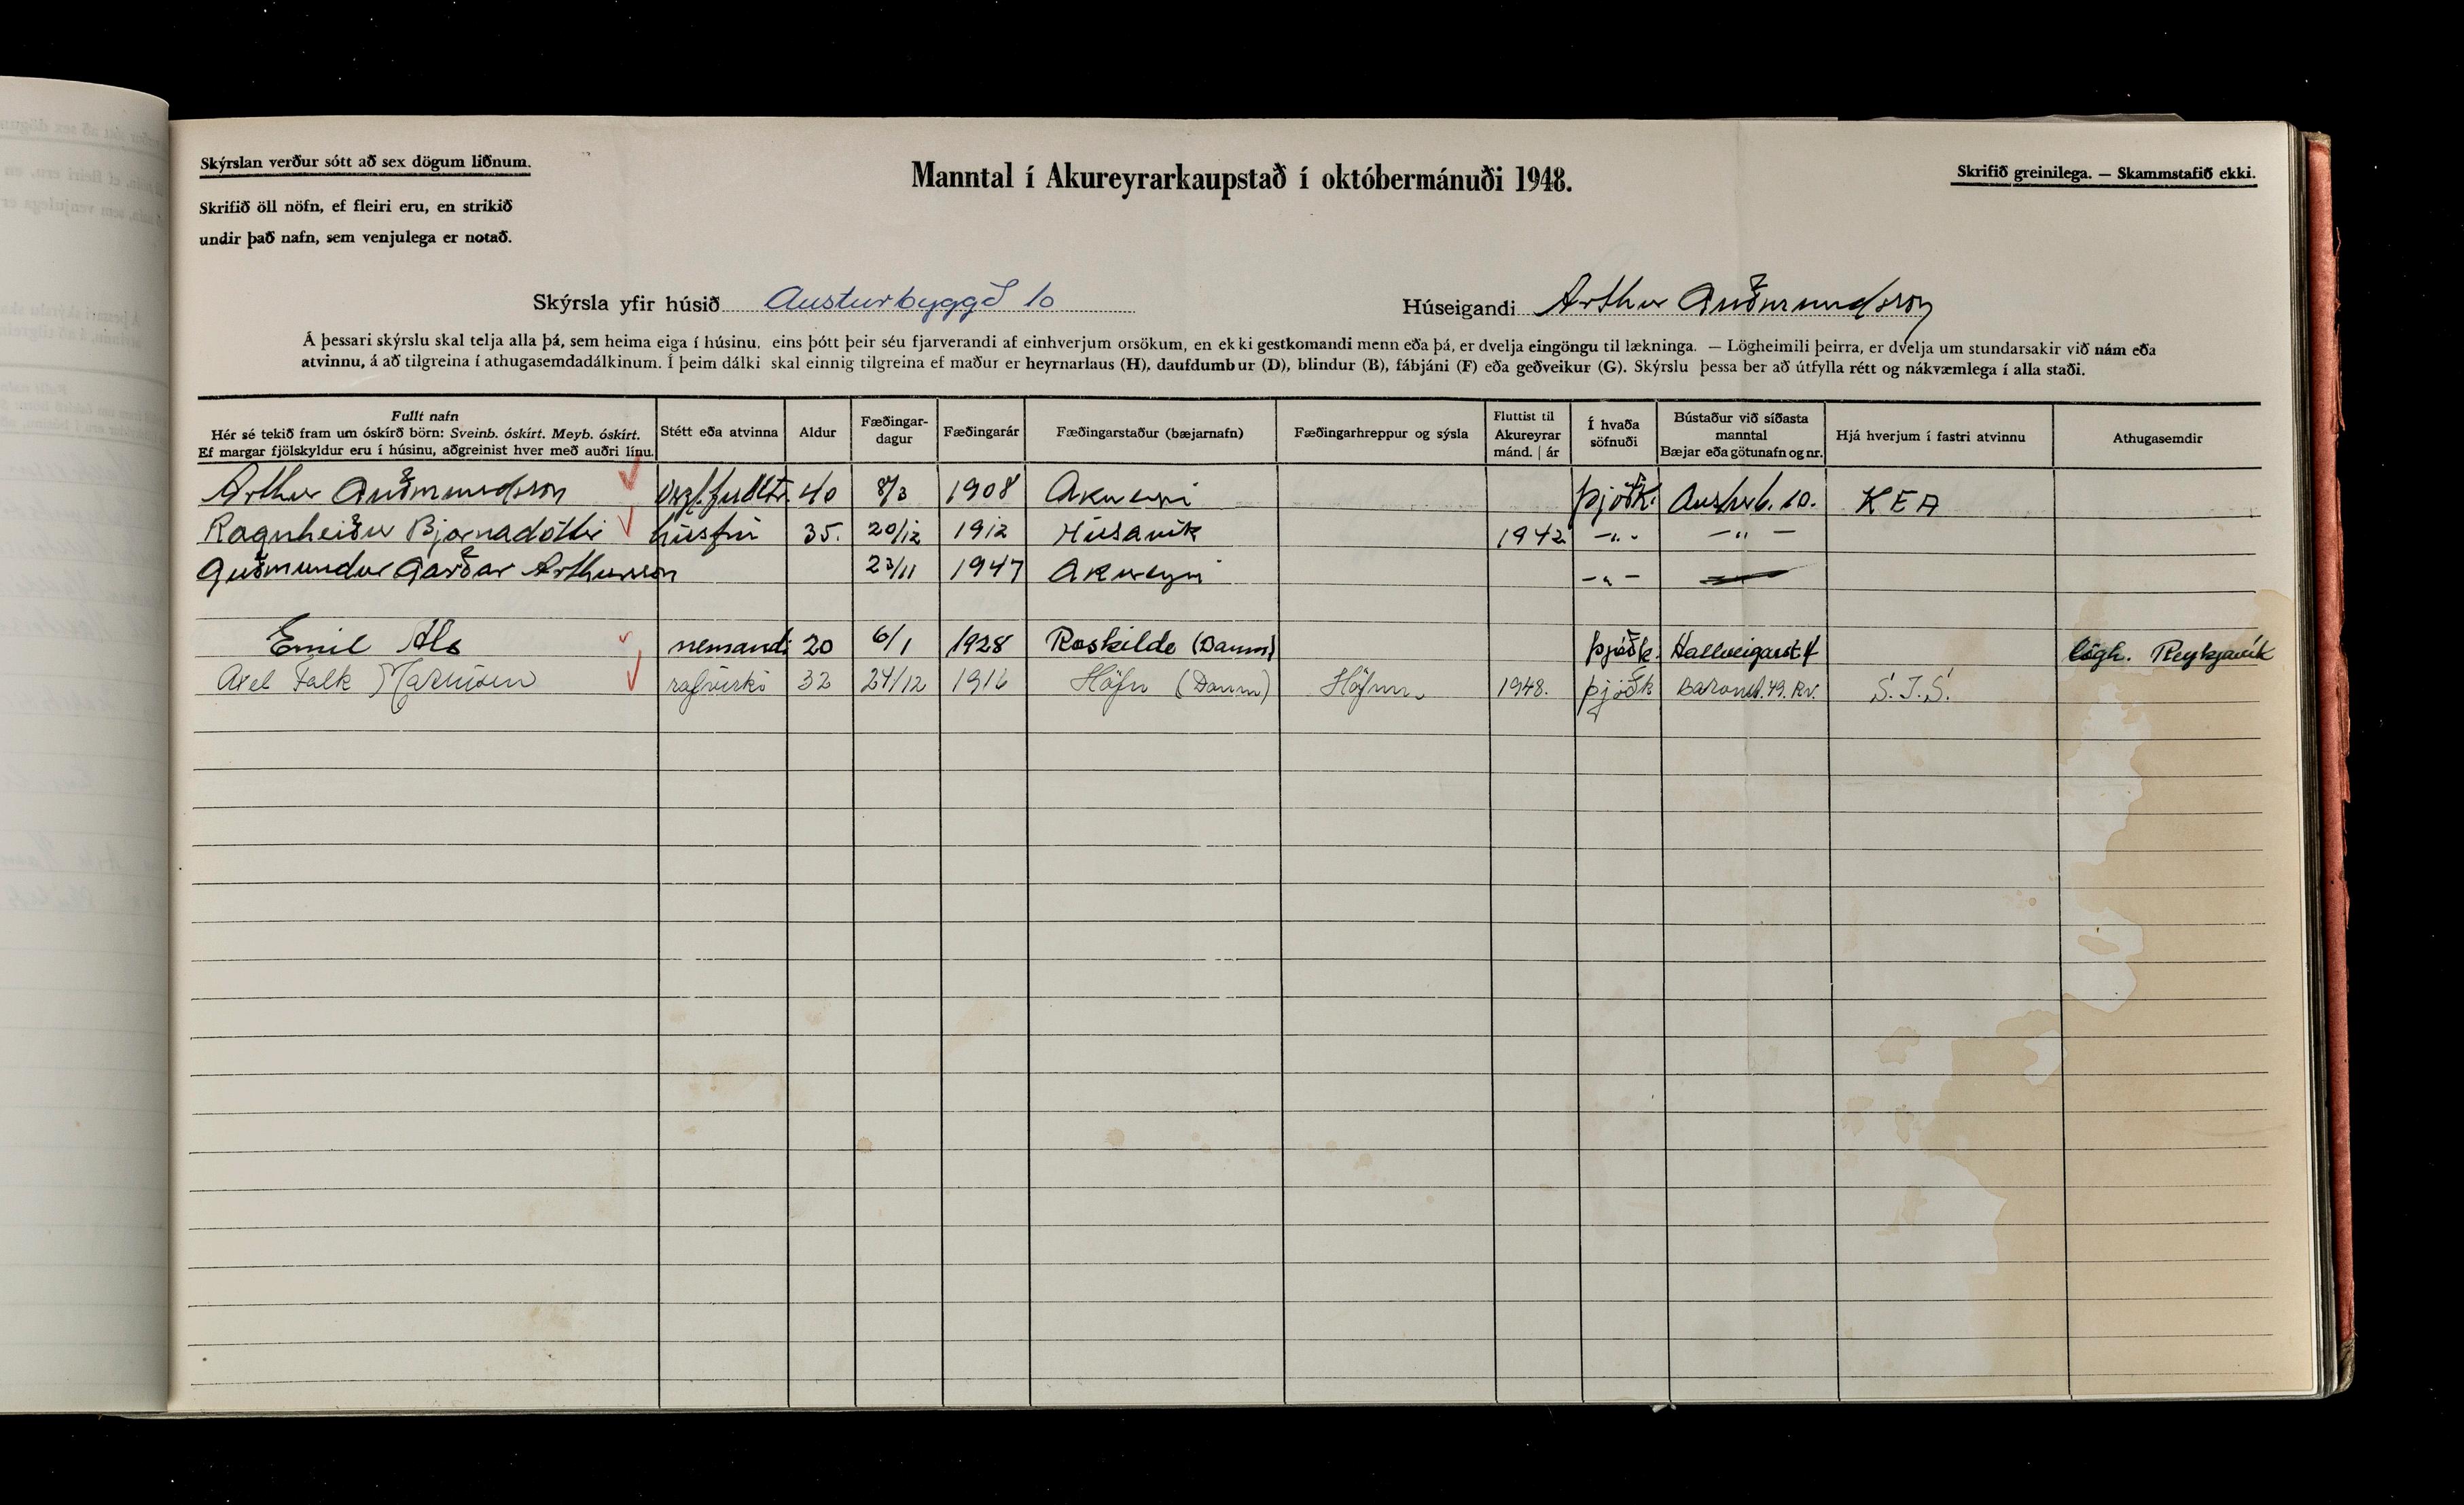 Skýrslan verður sótt að sex dögum liðnum.
Skrifið öll nöfn, ef fleiri eru, en strikið
undir það nafn, sem venjulega er notað.
Manntal í Akureyrarkaupstað í októbermánuði 1948.
Skrifið greinilega. — Skammstafið ekki.
Skýrsla yfir húsið Austurbyggð 10
Húseigandi Arthur Guðmundsson
Á þessari skýrslu skal telja alla þá, sem heima eiga í húsinu, eins þótt þeir séu fjarverandi af einhverjum orsökum, en ekki gestkomandi menn eða þá, er dvelja eingöngu til lækninga. — Lögheimili þeirra, er dvelja um stundarsakir við nám eða
atvinnu, á að tilgreina í athugasemdadálkinum. Í þeim dálki skal einnig tilgreina ef maður er heyrnarlaus (H), daufdumbur (D), blindur (B), fábjáni (F) eða geðveikur (G). Skýrslu þessa ber að útfylla rétt og nákvæmlega í alla staði.
Fullt nafn
Hér sé tekið fram um óskírð börn: Sveinb. óskírt. Meyb. óskírt.
Ef margar fjölskyldur eru í húsinu, aðgreinist hver með auðri línu.
Stétt eða atvinna
Aldur
Fæðingar-
dagur
Fæðingarár
Fæðingarstaður (bæjarnafn)
Fæðingarhreppur og sýsla
Fluttist til
Akureyrar
mánd. | ár
Í hvaða
söfnuði
Bústaður við síðasta
manntal
Bæjar eða götunafn og nr.
Hjá hverjum í fastri atvinnu
Athugasemdir
Arthur Guðmundsson 40 8/3 1908 Akureyri Þjóðk. Austurb. 10. KEA
Ragnheiður Bjarnadóttir húsfrú 35. 20/12 1912 Húsavík 1942 -"- -"-
Guðmundur Garðar Arthursson 23/11 1947 Akureyri -"-
Emil Als nemandi 20 6/1 1928 Roskilde (Danm) Þjóðk. Hallveigarst. lögh. Reykjavík
Axel Falk rafvirki 32 24/12 1916 Höfn (Danm) Höfnum 1948. Þjóðk Baronst. 49. Rv. S.Í.S.